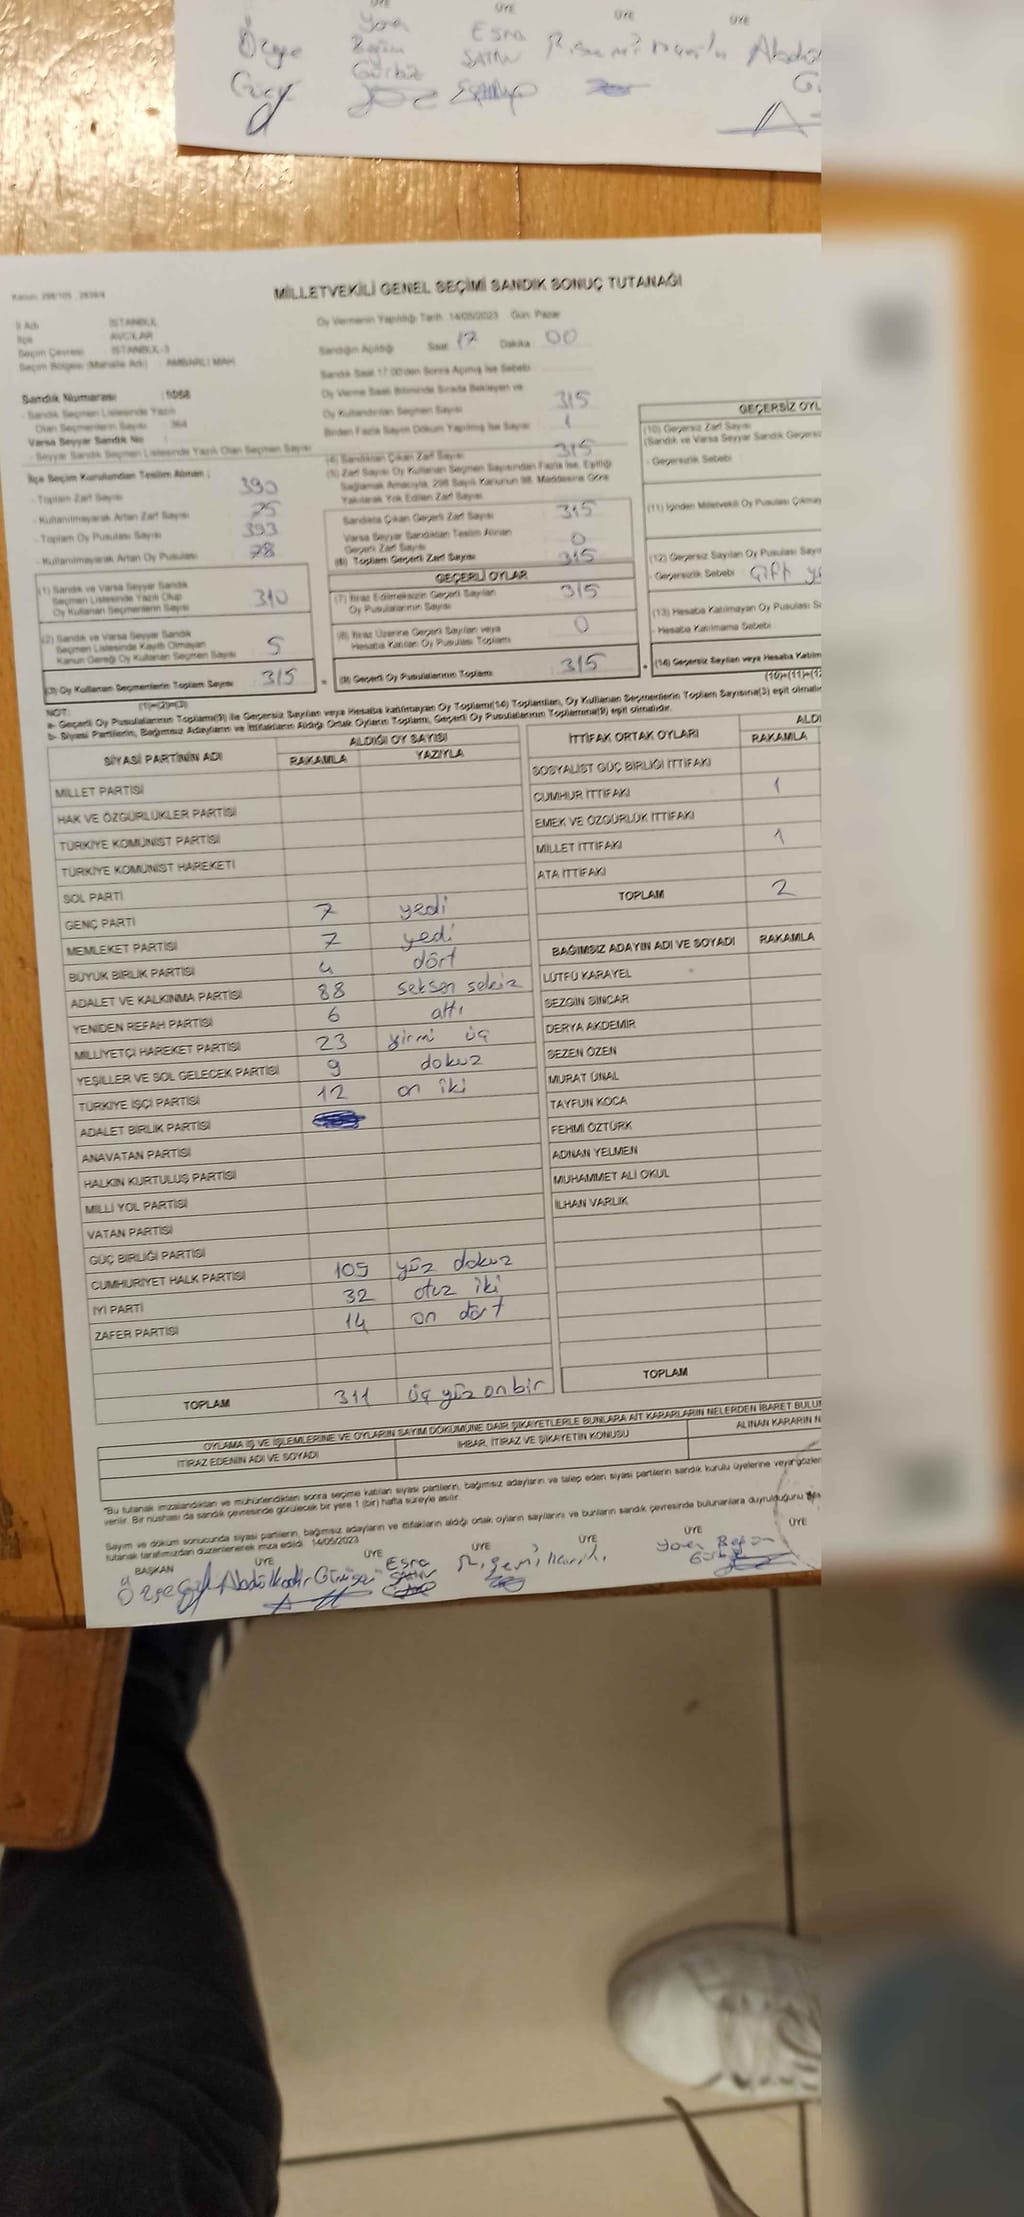 ÜYE ÜYE ÜYE ÜYE
Özge Yaren Esra
Begüm SATIN
Gürbüz
Kanun: 298/105 , 2839/4
MİLLETVEKİLİ GENEL SEÇİMİ SANDIK SONUÇ TUTANAĞI
İl Adı : İSTANBUL
İlçe : AVCILAR
Seçim Çevresi : İSTANBUL-3
Seçim Bölgesi (Mahalle Adı) : AMBARLI MAH.
Oy Vermenin Yapıldığı Tarih: 14/05/2023 Gün: Pazar
Sandığın Açıldığı Saat: 17 Dakika: 00
Sandık Saat 17:00'den Sonra Açılmış İse Sebebi:
Oy Verme Saati Bitiminde Sırada Bekleyen ve
Oy Kullandırılan Seçmen Sayısı 315
Birden Fazla Sayım Döküm Yapılmış İse Sayısı 1
Sandık Numarası
- Sandık Seçmen Listesinde Yazılı
Olan Seçmenlerin Sayısı : 364
Varsa Seyyar Sandık No :
- Seyyar Sandık Seçmen Listesinde Yazılı Olan Seçmen Sayısı
İlçe Seçim Kurulundan Teslim Alınan ;
- Toplam Zarf Sayısı 390
- Kullanılmayarak Artan Zarf Sayısı 75
- Toplam Oy Pusulası Sayısı 393
- Kullanılmayarak Artan Oy Pusulası 78
(1) Sandık ve Varsa Seyyar Sandık
Seçmen Listesinde Yazılı Olup
Oy Kullanan Seçmenlerin Sayısı 310
(2) Sandık ve Varsa Seyyar Sandık
Seçmen Listesinde Kayıtlı Olmayan
Kanun Gereği Oy Kullanan Seçmen Sayısı 5
(3) Oy Kullanan Seçmenlerin Toplam Sayısı 315
(1)+(2)=(3)
(4) Sandıktan Çıkan Zarf Sayısı 315
(5) Zarf Sayısı Oy Kullanan Seçmen Sayısından Fazla İse, Eşitliği
Sağlamak Amacıyla, 298 Sayılı Kanunun 98. Maddesine Göre
Yakılarak Yok Edilen Zarf Sayısı
Sandıkta Çıkan Geçerli Zarf Sayısı 315
Varsa Seyyar Sandıktan Teslim Alınan
Geçerli Zarf Sayısı 0
(6) Toplam Geçerli Zarf Sayısı 315
GEÇERLİ OYLAR
(7) İtiraz Edilmeksizin Geçerli Sayılan
Oy Pusulalarının Sayısı 315
(8) İtiraz Üzerine Geçerli Sayılan veya
Hesaba Katılan Oy Pusulası Toplamı 0
(9) Geçerli Oy Pusulalarının Toplamı 315
GEÇERSİZ OYL
(10) Geçersiz Zarf Sayısı
(Sandık ve Varsa Seyyar Sandık Geçersiz
- Geçersizlik Sebebi
(11) İçinden Milletvekili Oy Pusulası Çıkmay
(12) Geçersiz Sayılan Oy Pusulası Sayıs
- Geçersizlik Sebebi Çift
(13) Hesaba Katılmayan Oy Pusulası Sa
- Hesaba Katılmama Sebebi
(14) Geçersiz Sayılan veya Hesaba Katılm
(10)+(11)+(12
NOT:
a- Geçerli Oy Pusulalarının Toplamı(9) ile Geçersiz Sayılan veya Hesaba katılmayan Oy Toplamı(14) Toplamları, Oy Kullanan Seçmenlerin Toplam Sayısına(3) eşit olmalıdır.
b- Siyasi Partilerin, Bağımsız Adayların ve İttifakların Aldığı Ortak Oyların Toplamı, Geçerli Oy Pusulalarının Toplamına(9) eşit olmalıdır.
SİYASİ PARTİNİN ADI ALDIĞI OY SAYISI
RAKAMLA YAZIYLA
MİLLET PARTİSİ
HAK VE ÖZGÜRLÜKLER PARTİSİ
TÜRKİYE KOMÜNİST PARTİSİ
TÜRKİYE KOMÜNİST HAREKETİ
SOL PARTİ
GENÇ PARTİ 7 yedi
MEMLEKET PARTİSİ 7 yedi
BÜYÜK BİRLİK PARTİSİ 4 dört
ADALET VE KALKINMA PARTİSİ 88 seksen sekiz
YENİDEN REFAH PARTİSİ 6 altı
MİLLİYETÇİ HAREKET PARTİSİ 23 yirmi üç
YEŞİLLER VE SOL GELECEK PARTİSİ 9 dokuz
TÜRKİYE İŞÇİ PARTİSİ 12 on iki
ADALET BİRLİK PARTİSİ
ANAVATAN PARTİSİ
HALKIN KURTULUŞ PARTİSİ
MİLLİ YOL PARTİSİ
VATAN PARTİSİ
GÜÇ BİRLİĞİ PARTİSİ
CUMHURİYET HALK PARTİSİ 109 yüz dokuz
İYİ PARTİ 32 otuz iki
ZAFER PARTİSİ 14 on dört
TOPLAM 311 üç yüz on bir
İTTİFAK ORTAK OYLARI ALDI
RAKAMLA
SOSYALİST GÜÇ BİRLİĞİ İTTİFAKI
CUMHUR İTTİFAKI 1
EMEK VE ÖZGÜRLÜK İTTİFAKI
MİLLET İTTİFAKI 1
ATA İTTİFAKI
TOPLAM 2
BAĞIMSIZ ADAYIN ADI VE SOYADI RAKAMLA
LÜTFÜ KARAYEL
SEZGİN SİNCAR
DERYA AKDEMİR
SEZEN ÖZEN
MURAT ÜNAL
TAYFUN KOCA
FEHMİ ÖZTÜRK
ADNAN YELMEN
MUHAMMET ALİ OKUL
İLHAN VARLIK
TOPLAM
OYLAMA İŞ VE İŞLEMLERİNE VE OYLARIN SAYIM DÖKÜMÜNE DAİR ŞİKAYETLERLE BUNLARA AİT KARARLARIN NELERDEN İBARET BULUN
İTİRAZ EDENİN ADI VE SOYADI İHBAR, İTİRAZ VE ŞİKAYETİN KONUSU ALINAN KARARIN N
"Bu tutanak imzalandıktan ve mühürlendikten sonra seçime katılan siyasi partilerin, bağımsız adayların ve talep eden siyasi partilerin sandık kurulu üyelerine veya gözlem
verilir. Bir nüshası da sandık çevresinde görülecek bir yere 1 (bir) hafta süreyle asılır.
Sayım ve döküm sonucunda siyasi partilerin, bağımsız adayların ve ittifakların aldığı ortak oyların sayılarını ve bunların sandık çevresinde bulunanlara duyrulduğunu
tutanak tarafımızdan düzenlenerek imza edildi. 14/05/2023
BAŞKAN ÜYE ÜYE ÜYE ÜYE ÜYE ÜYE
Özge Abdülkadir Esra Yaren Begüm
SATIN Gürbüz